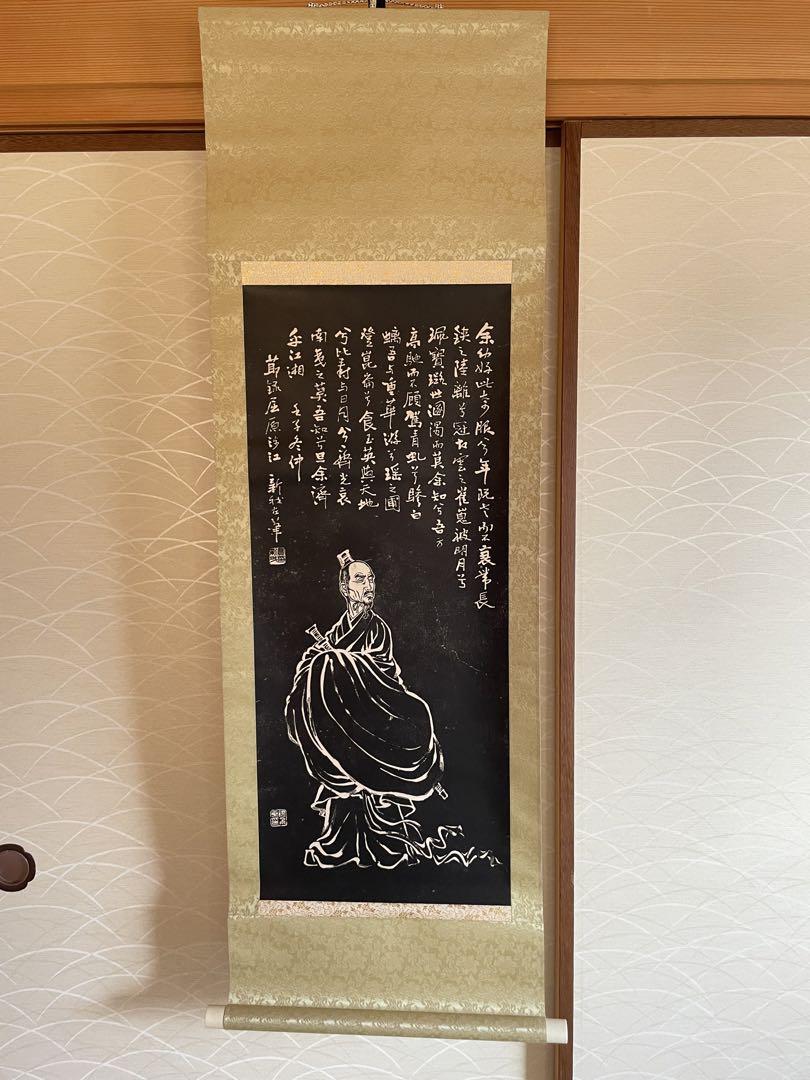 余幼好此奇服兮年既老而不衰帶長
鋏之陸離兮冠切雲之崔嵬被明月兮
珮寶璐世溷濁而莫余知兮吾方
高馳而不顧駕青虬兮驂白
螭吾與重華游兮瑤之圃
登崑崙兮食玉英與天地
兮比壽與日月兮齊光哀
南夷之莫吾知兮旦余濟
乎江湘 壬子冬仲
節錄屈原涉江